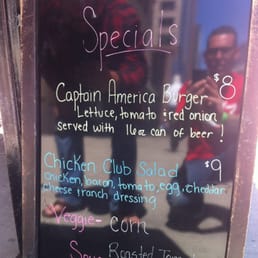 Specials
$8
Captain America Burger
Lettuce, tomato & red onion
served with 16oz can of beer!
$9
Chicken Club Salad
chicken, bacon, tomato, egg, cheddar
cheese & ranch dressing
Veggie - corn
Soup Roasted